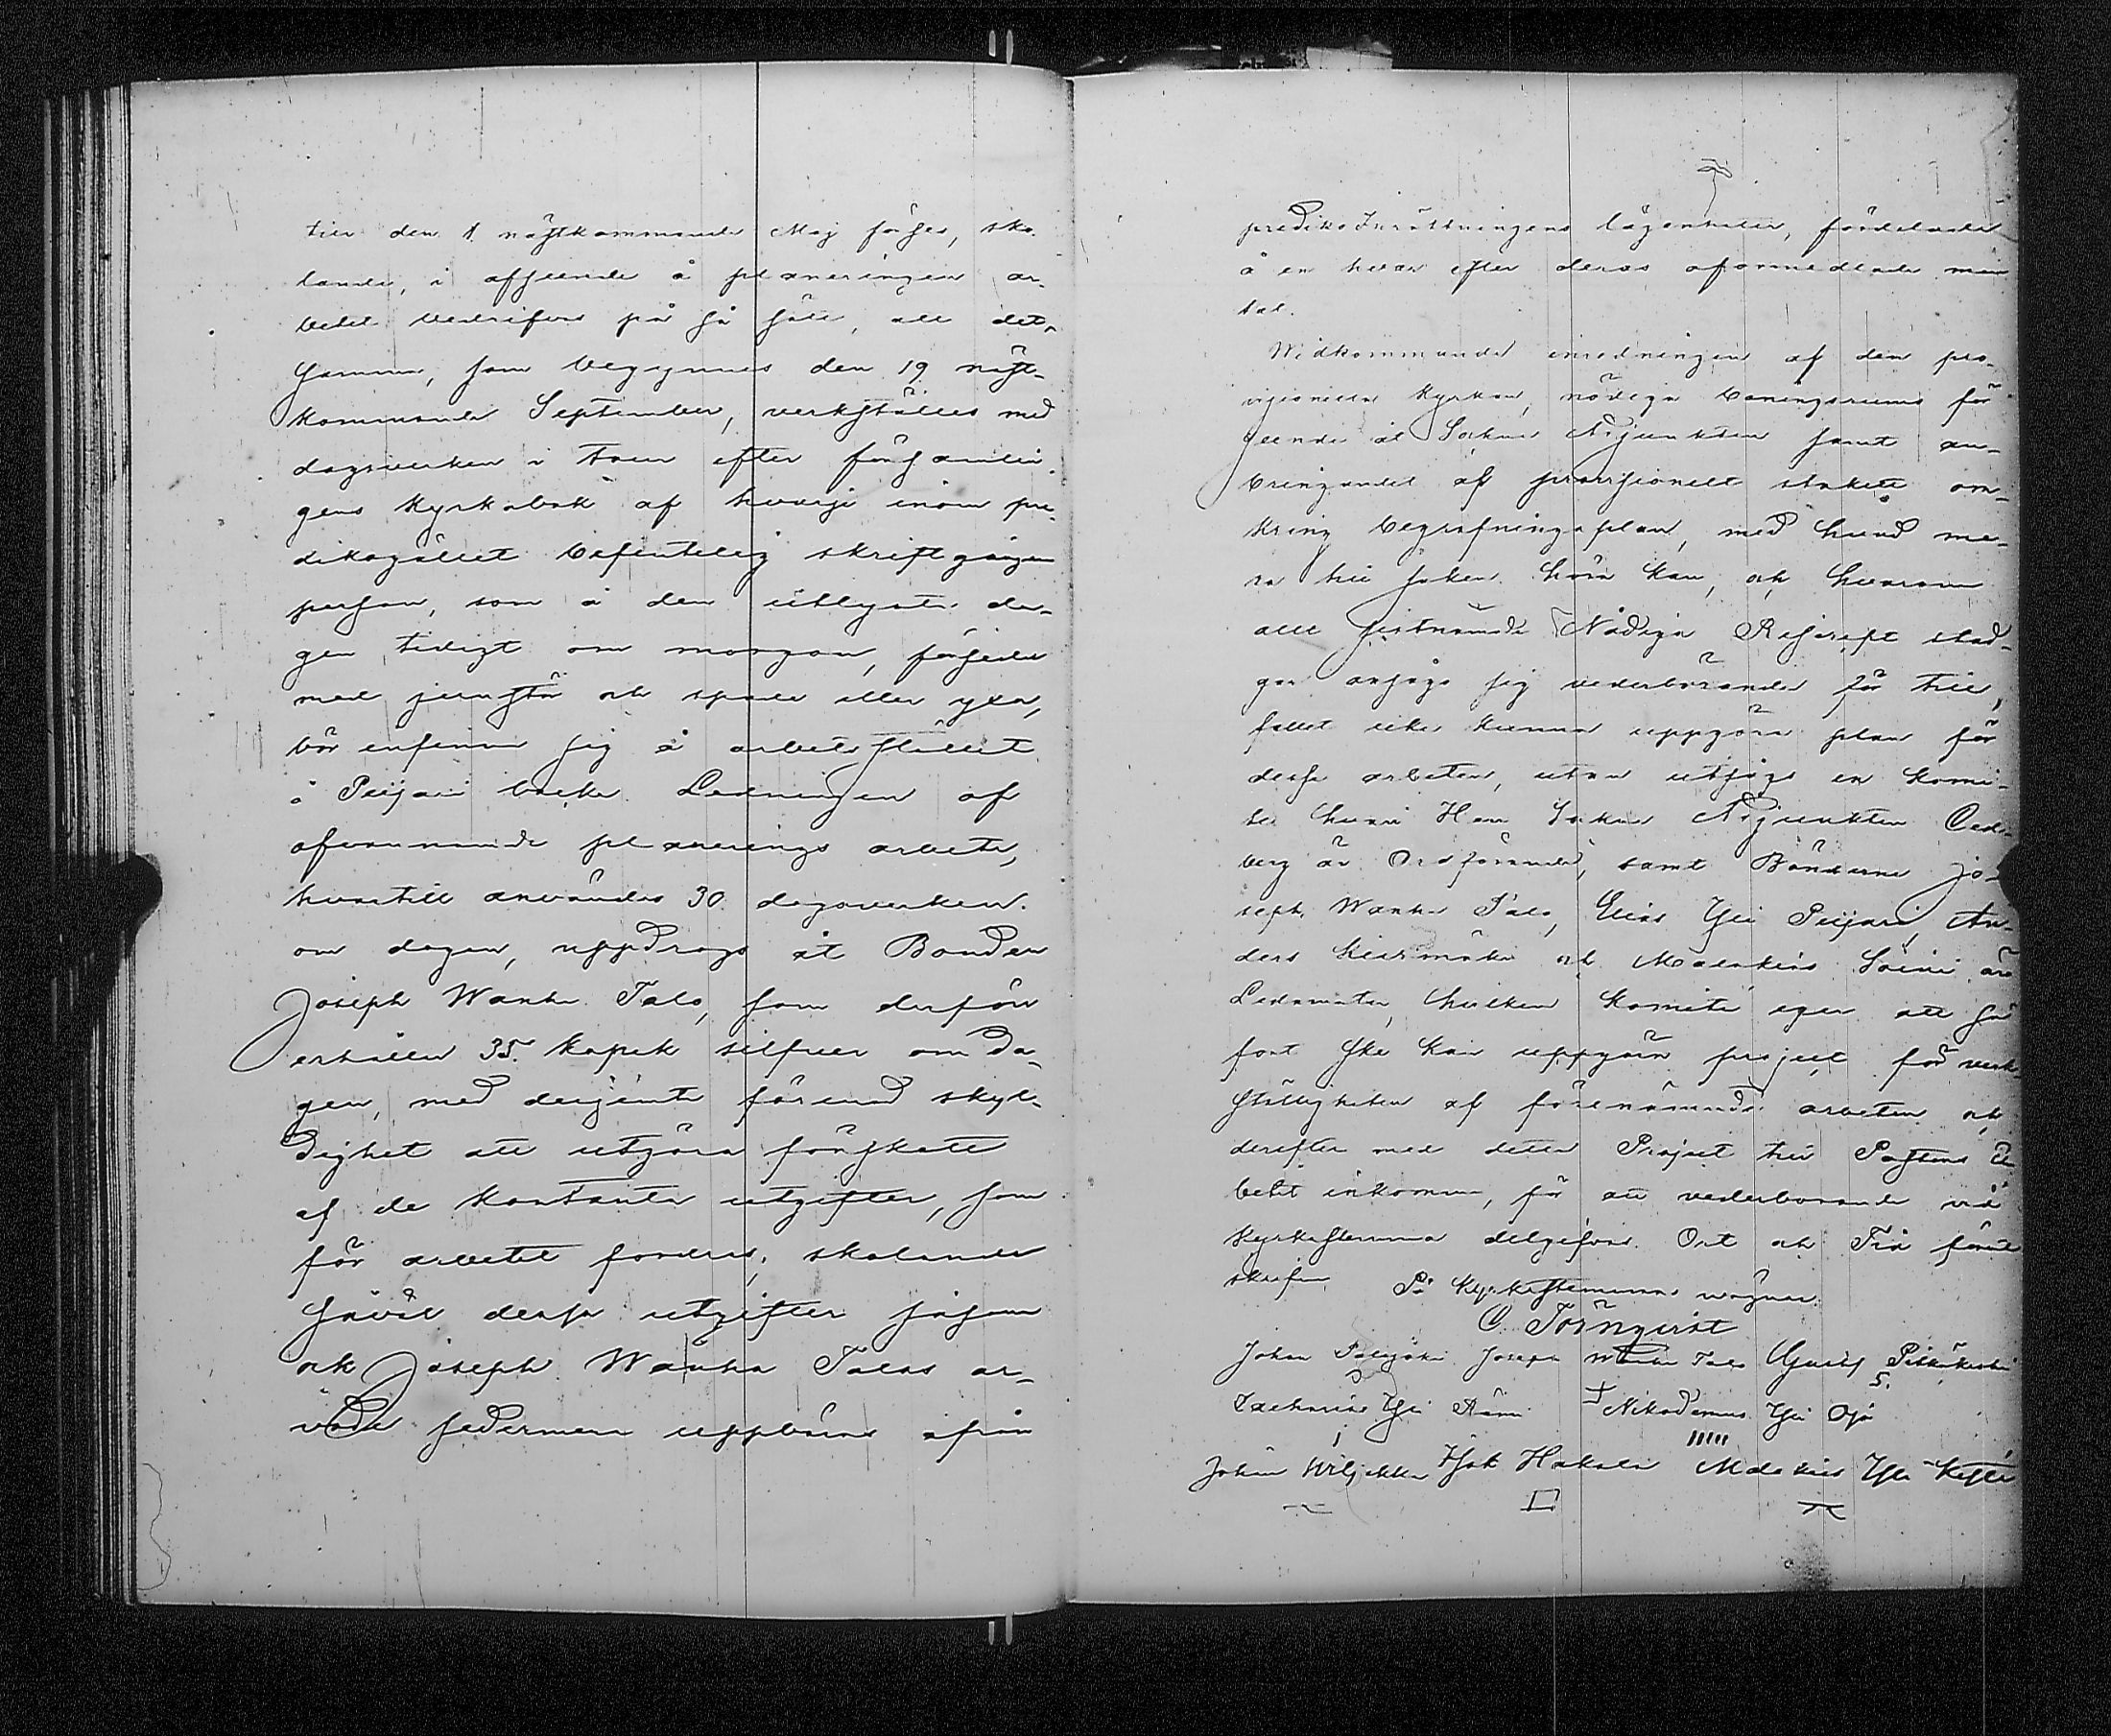 till den 1. nästkommande Maj förses, sko-
lande, i afseende å planeringen ar-
betet bedrifvas på så sätt, att det-
samma, som begynnes den 19 näst-
kommande September, verkställes med
dagsverken i tour efter församlin-
gens kyrkobok af hvarje inom pre-
dikogället befintelig skriftgången
person, som å den utlysta da-
gen, tidigt om morgon, försedd
med jernstör och spade eller yxa,
bör infinna sig å arbetsstället
å Peijari backe. Ledningen af
ofvannämnde planerings arbete,
hvartill användes 30 dagsverken
om dagen, uppdrogs åt Bonden
Joseph Wanha Talo, som derföre
erhåller 35. kopek silfver om da-
gen, med deijemte förenad skyl-
dighet att utgöra förskott
af de kontanta utgifter, som
för arbetet fordras; skolande
såväl dessa utgifter såsom
ock Joseph Wanha Talos ar-
vode sedermera uppbäras ifrån
predikoInrättningens lägenheter, fördelade
å en hvar efter deras oförmedlade man-
tal.
Widkommande inredningen af den pro-
visionella Kyrkan, nödiga boningsrums för
seende åt Sockne Adjunkten samt an-
bringandet af provisionelt staket om-
kring begrafningsplan, med hvad me-
ra till saken höra kan, och hvarom
allt sistnämnde Nådiga Rescript stad-
gar ansågo sig vederbörande för till-
fället icke kunna uppgöra plan för
dessa arbeten, utan utsågs en Komi-
te hvari Herr Sockne Adjunkten Ced-
berg är Ordförande, samt Bönderne Jo-
seph Wanha Talo, Elias Yli Peijari, An-
ders Keskimäki och Malakias Soini äro
Ledamöter, hvilken Komite eger att så
fort ske kan uppgöra project för verk-
ställigheten af förenämnde arbeten och
derefter med detta Project till Pastors Em-
betet inkomma, för att vederbörande vid
Kyrkostämma delgifvas. Ort och Tid förut
skrifne På Kyrkostämmans wägnar.
C. Törnqvist
Johan Joseph Wanha Talo Gustaf
Zacharias Yli Rämi Nikodemus Yli Oja
Johan Isak Hakala Malakias Yli